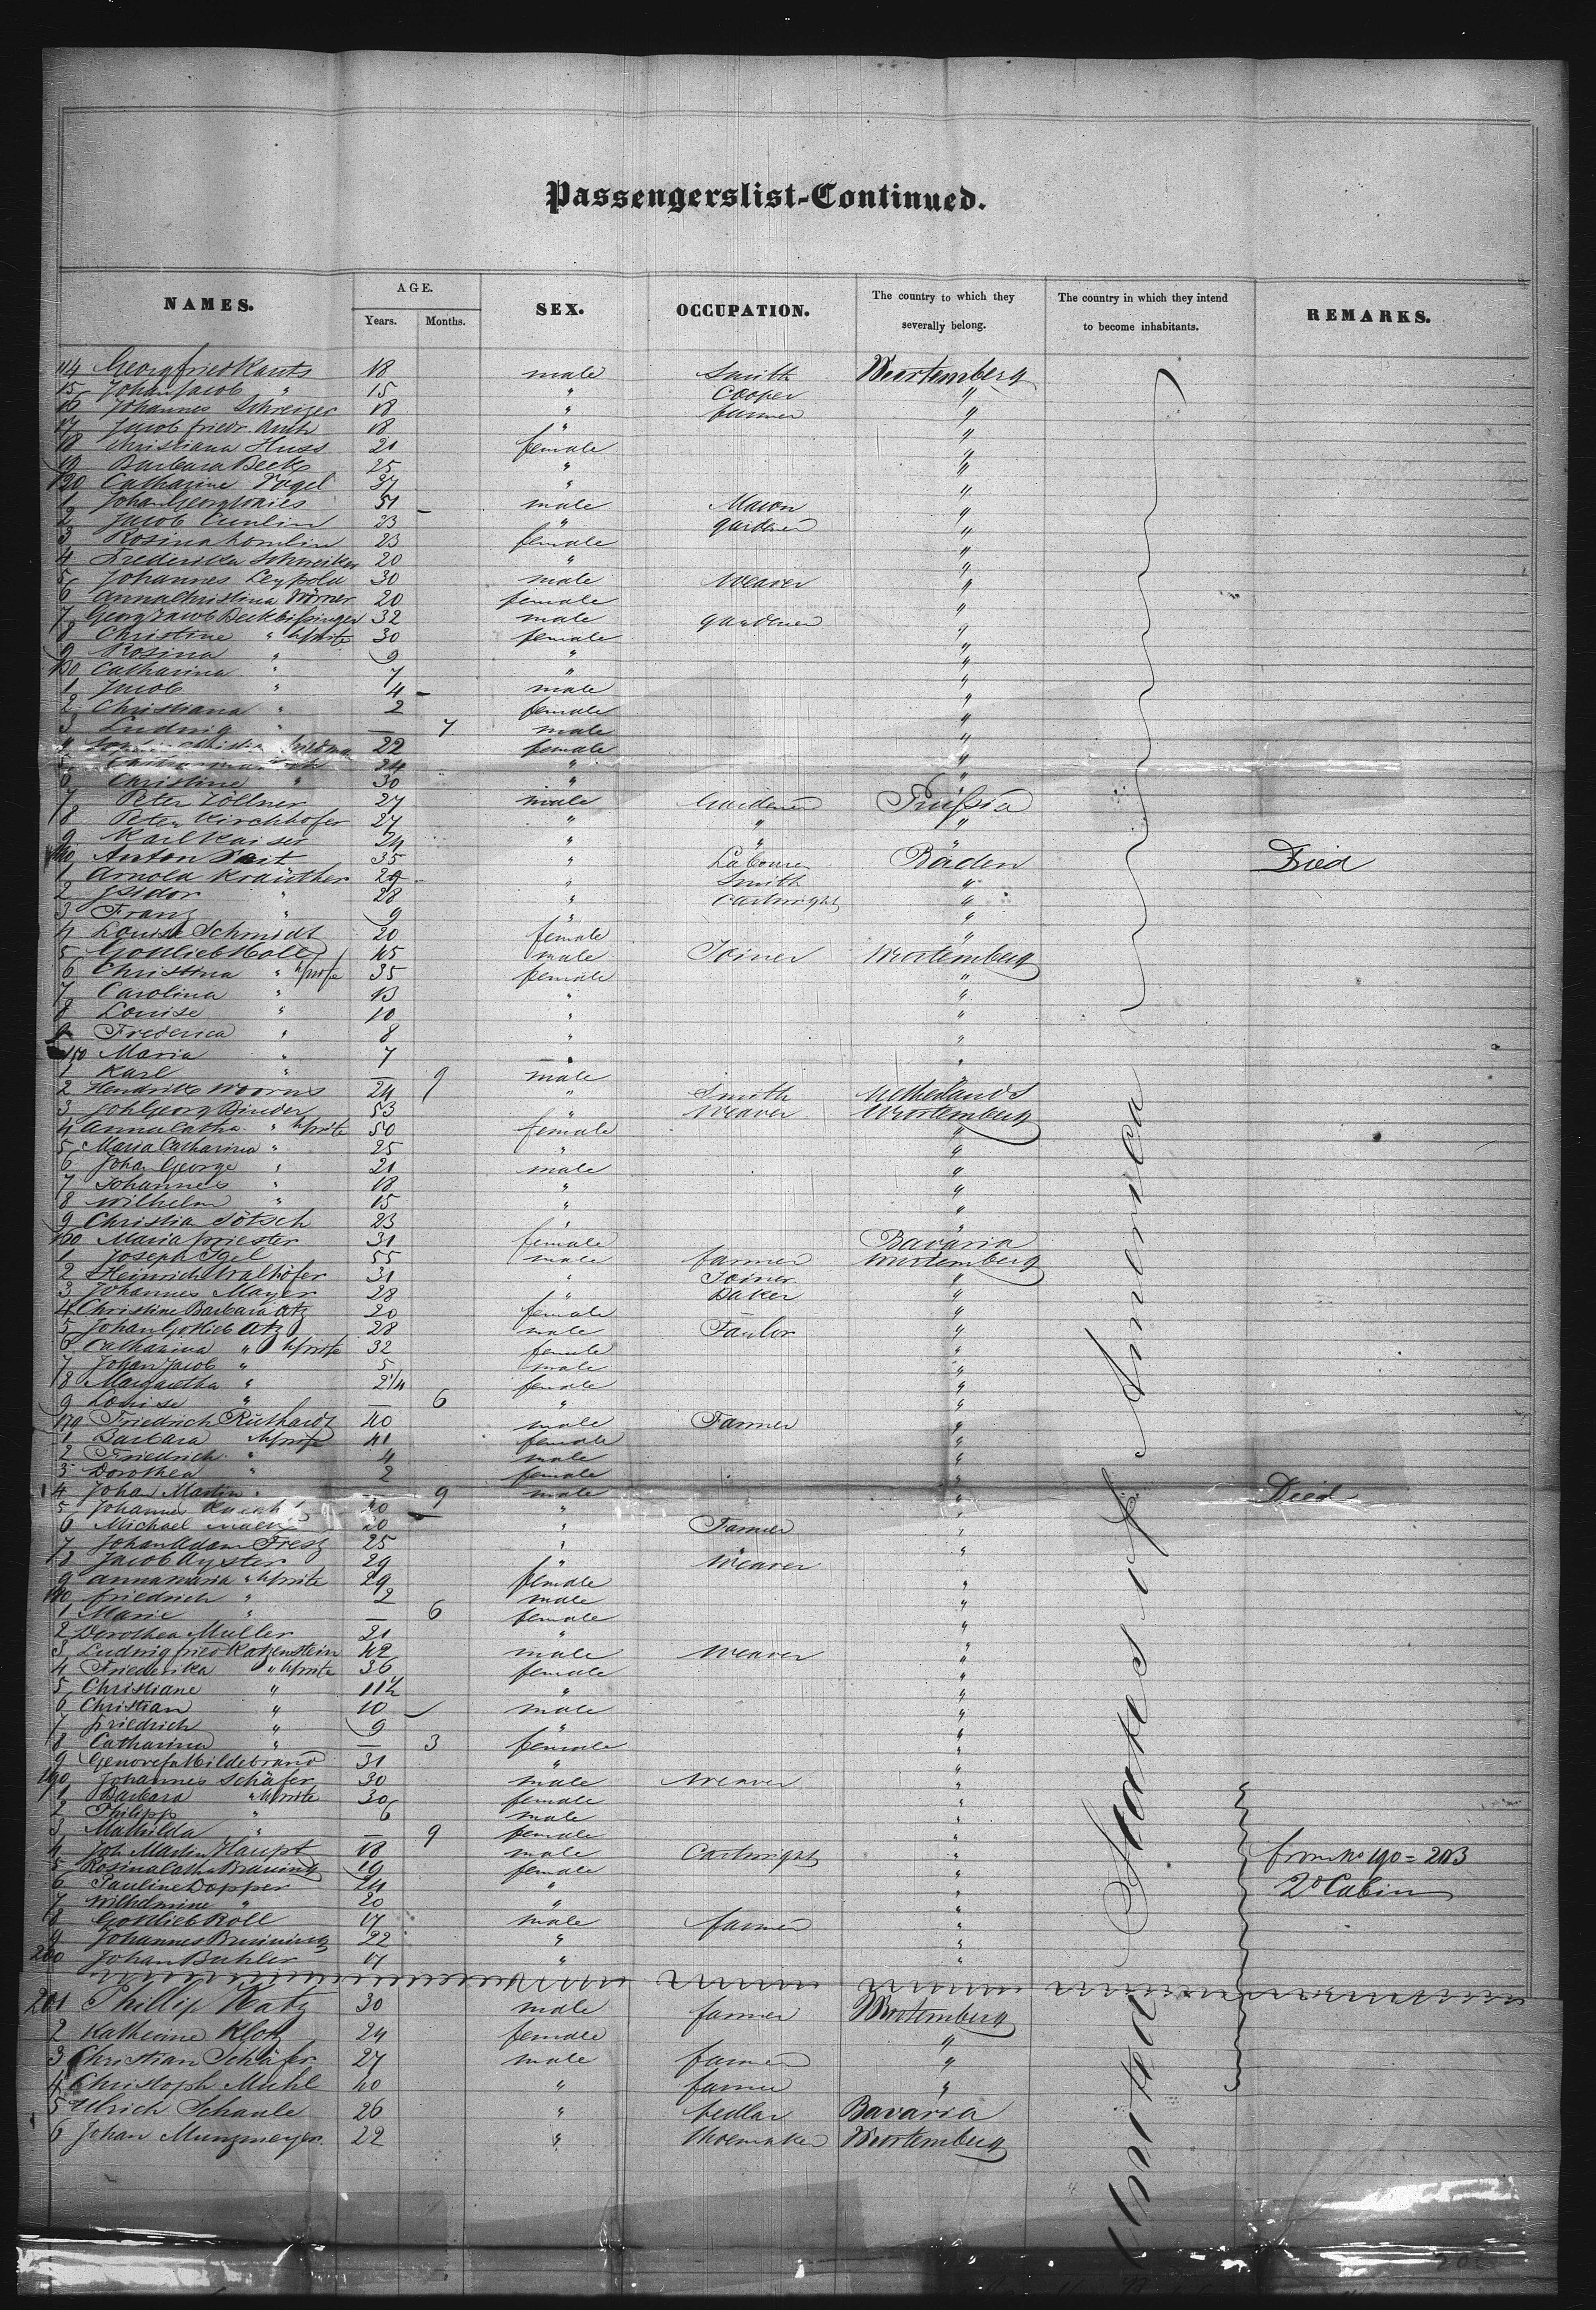 Passengerslist-Continued.
NAMES. AGE. SEX. OCCUPATION. The country to which they severally belong. The country in which they intend to become inhabitants. REMARKS.
Years. Months.
114 Georg fried Kauts 18 male Smith Wurtemberg
15 Johan Jacob " 15 " Cooper "
16 Johannes Schweizer 18 " farmer "
17 Jacob friedr. 18 " "
18 Christiana Huss 21 female "
19 Barbara Beck 25 " "
120 Catharine Vogel 37 " "
1 Johan Georg 51 male Mason "
2 Jacob Cunlin 23 " gardener "
3 Rosina 23 female "
4 Frederika Schneiker 20 " "
5 Johannes Leypold 30 male Weaver "
6 Anna Christina Wörner 20 female "
7 Georg Jacob Beckbissinger 32 male gardener "
8 Christine " h/wite 30 female "
9 Rosina " 9 " "
130 Catharina " 7 " "
1 Jacob " 4 male "
2 Christiana " 2 female "
3 Ludwig " — 7 male "
4 22 female "
5 24 " "
6 Christine " 30 " "
7 Peter Zöllner 27 male Gardener Prussia
8 Peter Kirchhofer 27 " " "
9 Karl Kaiser 24 " "
140 Anton Veit 35 " Labourer Baden Died
1 Arnold Kraüther 29 " Smith "
2 Isidor " 28 " Cartwright "
3 Franz " 9 " "
4 Louise Schmidt 20 female "
5 Gottlieb Holl 45 male Joiner Wurtemberg
6 Christina " h/wife 35 female "
7 Carolina " 13 " "
8 Louise " 10 " "
9 Frederica " 8 " "
150 Maria " 7 " "
1 Karl " — 9 male "
2 Hendrik Woorns 24 " Smith Netherlands
3 Joh Georg Binder 53 " Weaver Wurtemberg
4 Anna Catha. " h/wite 50 female "
5 Maria Catharina " 25 " "
6 Johan George " 21 male "
7 Johannes " 18 " "
8 Wilhelm " 15 " "
9 Christian Götsch 23 " "
160 Maria Priester 31 female Bavaria
1 Joseph Igel 55 male farmer Wurtemberg
2 Heinrich Walhöfer 31 " Joiner "
3 Johannes Mayer 28 " Baker "
4 Christine Barbara Otz 20 female "
5 Johan Gottlieb Otz 28 male Taylor "
6 Catharina " h/wife 32 female "
7 Johan Jacob " 5 male "
8 Margaretha " 2 1/4 female "
9 Louise " — 6 " "
170 Friedrich Riethardz 40 male Farmer "
1 Barbara h/wife 41 female "
2 Friedrich " 4 male "
3 Dorothea " 2 female "
4 Johan Martin " — 9 male " Died
5 Johannes 40 " "
6 Michael 20 " Farmer "
7 Johan Adam Fresz 25 " "
8 Jacob Ayster 29 " Weaver "
9 Anna Maria " h/wite 29 female "
180 friedrich " 2 male "
1 Marie " — 6 female "
2 Dorothea Muller 21 " "
3 Ludwig fried Katzenstein 42 male Weaver "
4 Friederika " h/wite 36 female "
5 Christiane " 11 1/2 " "
6 Christian " 10 male "
7 friedrich " 9 " "
8 Catharina " — 3 female "
9 Genovefa Hildebrand 31 " "
190 Johannes Schäfer 30 male Weaver "
1 Barbara " h/wite 30 female "
2 Philipp " 6 male "
3 Mathilda " — 9 female "
4 Joh Martin Haupt 18 male Cartwright " from no 190 = 203
5 Rosina Catha Bruning 19 female "
6 Pauline Dopper 24 " " 2d Cabin
7 Wilhelmine " 20 " "
8 Gottlieb Roll 17 male farmer "
9 Johannes Bruning 22 " "
200 Johan Buhler 17 " "
201 Phillip Katz 30 male farmer Wurtemberg
2 Katherine Klotz 24 female "
3 Christian Schäfer 27 male farmer "
4 Christoph Muhl 40 " farmer "
5 Ulrich Schaule 26 " pedlar Bavaria
6 Johan Munzmeyer 22 " Shoemaker Wurtemberg
United States of America